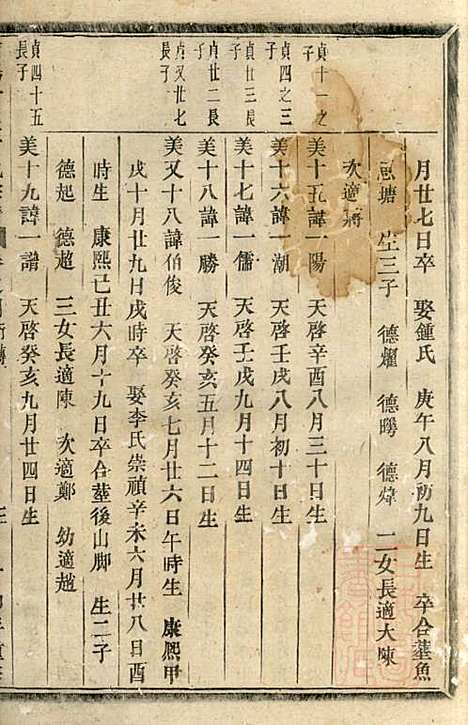 月廿七日卒 娶鍾氏 庚午八月初九日生 卒合塟魚
塘 生三子 德耀 德暘 德煒 二女長適大陳
次適蔣
貞十一之子
美十五諱一陽 天啓辛酉八月三十日生
貞四之三子
美十六諱一潮 天啓壬戌八月初十日生
貞廿三長子
美十七諱一儒 天啓壬戌九月十四日生
貞廿二長子
美十八諱一勝 天啓癸亥五月十二日生
貞又廿七長子
美又十八諱伯俊 天啓癸亥七月廿六日午時生 康熙甲
戌十月廿九日戌時卒 娶李氏崇禎辛未六月廿八日酉
時生 康熙己丑六月十九日卒合塟後山脚 生二子
德起 德超 三女長適陳 次適鄭 幼適趙
貞四十五長子
美十九諱一譜 天啓癸亥九月廿四日生